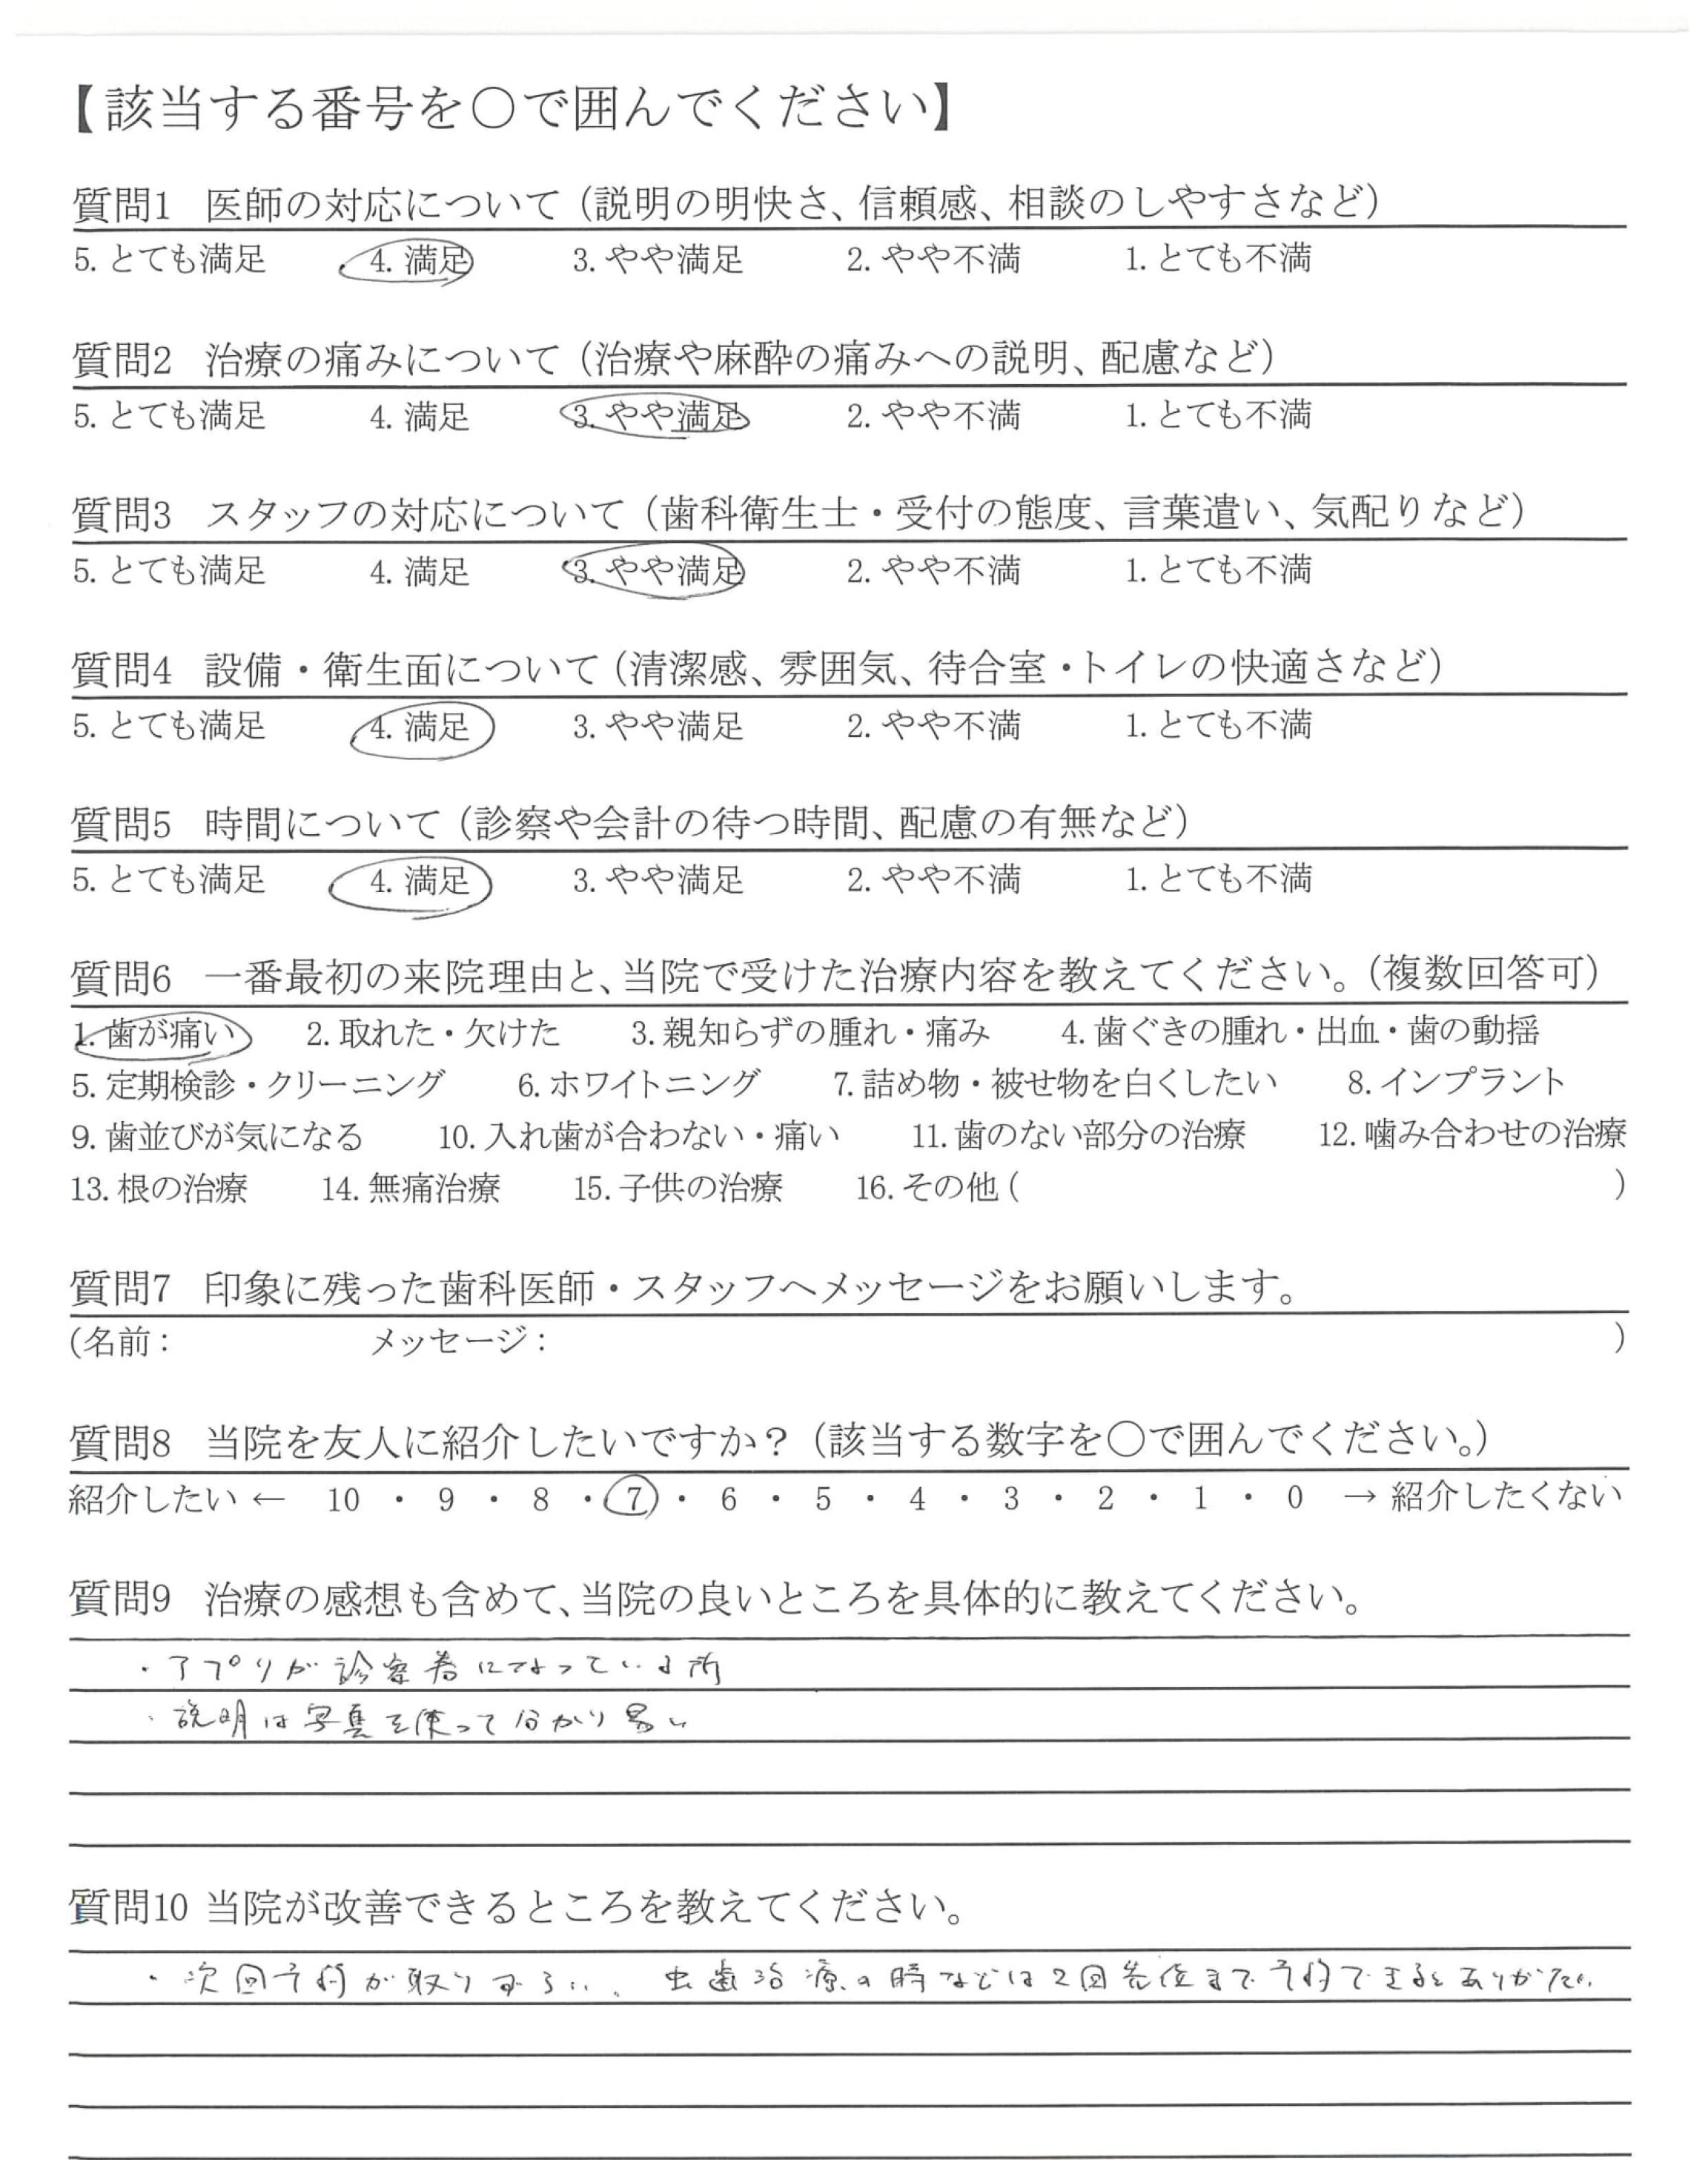 【該当する番号を〇で囲んでください】
質問1 医師の対応について（説明の明快さ、信頼感、相談のしやすさなど）
5. とても満足 4. 満足 3. やや満足 2. やや不満 1. とても不満
質問2 治療の痛みについて（治療や麻酔の痛みへの説明、配慮など）
5. とても満足 4. 満足 3. やや満足 2. やや不満 1. とても不満
質問3 スタッフの対応について（歯科衛生士・受付の態度、言葉遣い、気配りなど）
5. とても満足 4. 満足 3. やや満足 2. やや不満 1. とても不満
質問4 設備・衛生面について（清潔感、雰囲気、待合室・トイレの快適さなど）
5. とても満足 4. 満足 3. やや満足 2. やや不満 1. とても不満
質問5 時間について（診察や会計の待つ時間、配慮の有無など）
5. とても満足 4. 満足 3. やや満足 2. やや不満 1. とても不満
質問6 一番最初の来院理由と、当院で受けた治療内容を教えてください。（複数回答可）
1. 歯が痛い 2. 取れた・欠けた 3. 親知らずの腫れ・痛み 4. 歯ぐきの腫れ・出血・歯の動揺
5. 定期検診・クリーニング 6. ホワイトニング 7. 詰め物・被せ物を白くしたい 8. インプラント
9. 歯並びが気になる 10. 入れ歯が合わない・痛い 11. 歯のない部分の治療 12. 噛み合わせの治療
13. 根の治療 14. 無痛治療 15. 子供の治療 16. その他（ ）
質問7 印象に残った歯科医師・スタッフへメッセージをお願いします。
（名前： メッセージ： ）
質問8 当院を友人に紹介したいですか？（該当する数字を〇で囲んでください。）
紹介したい ← 10 ・ 9 ・ 8 ・ 7 ・ 6 ・ 5 ・ 4 ・ 3 ・ 2 ・ 1 ・ 0 → 紹介したくない
質問9 治療の感想も含めて、当院の良いところを具体的に教えてください。
・アプリが診察券になっている所
・説明は写真を使って分かり易い
質問10 当院が改善できるところを教えてください。
・次回予約が取りずらい。 虫歯治療の時などは2回先位まで予約できるとありがたい